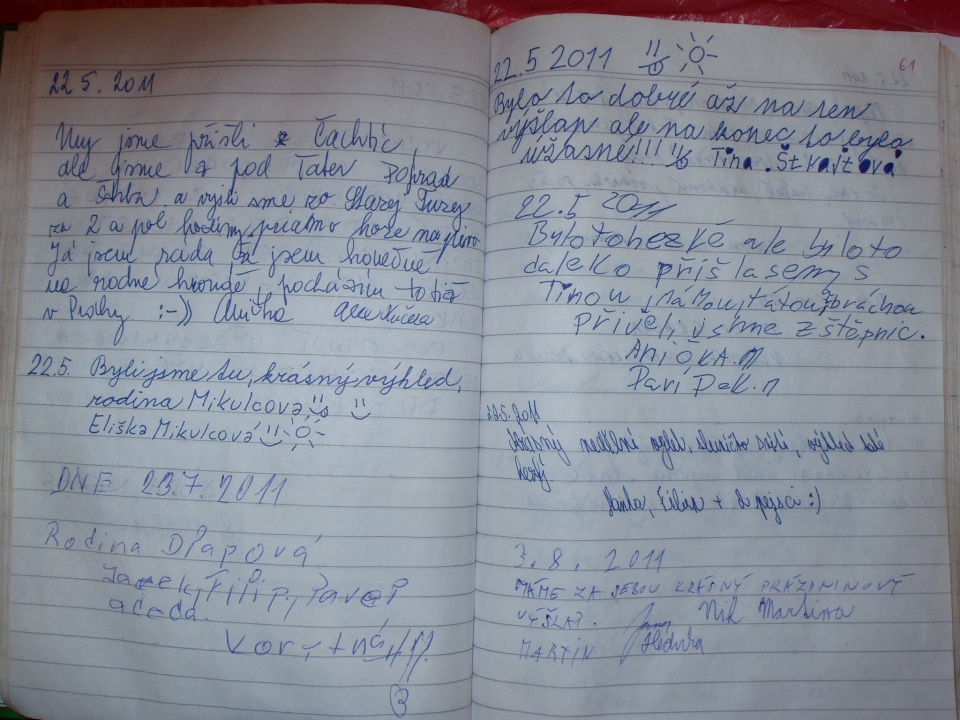 22.5. 2011
My jsme přišli z Čachtic
ale jsme z pod Tater Poprad
a Štrba a vyšli sme zo Starej Turej
za 2 a pol hodiny priamo hore
Já jsem rada že jsem konečně
na rodné hroudě, pocházím totiž
v Prahy :-)) Anička
22.5. Byli jsme tu, krásný výhled,
rodina Mikulcova
Eliška Mikulcová
DNE 23.7.2011
Rodina Dřapová
Jarek, Filip, Pavel
a
3
22.5 2011
61
Bylo to dobré až na ten
výšlap ale na konec to bylo
úžasné!!! Tina.Štrajtová
22.5 2011
Bylo to hezké ale bylo to
daleko příšla sem s
Tinou, mámou, tátou, bráchou
Přivěli, sme z štěpnic.
22.5.2011
úžasný nedělní výlet, sluníčko svítí, výhled také
hezký
Janka, Filip + 2 pejsci :)
3.8. 2011
MÁME ZA SEBOU KRÁSNÝ PRÁZDNINOVÝ
VÝŠLAP. Nik Martina
MARTIN